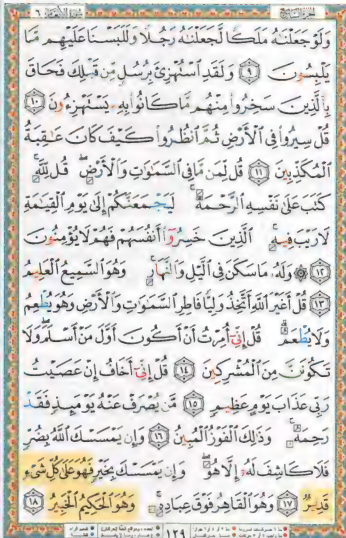 الجزء السابع سورة الأنعام ٦
وَلَوْ جَعَلْنَٰهُ مَلَكًا لَّجَعَلْنَٰهُ رَجُلًا وَلَلَبَسْنَا عَلَيْهِم مَّا
يَلْبِسُونَ ٩ وَلَقَدِ ٱسْتُهْزِئَ بِرُسُلٍ مِّن قَبْلِكَ فَحَاقَ
بِٱلَّذِينَ سَخِرُوا۟ مِنْهُم مَّا كَانُوا۟ بِهِۦ يَسْتَهْزِءُونَ ١٠
قُلْ سِيرُوا۟ فِى ٱلْأَرْضِ ثُمَّ ٱنظُرُوا۟ كَيْفَ كَانَ عَٰقِبَةُ
ٱلْمُكَذِّبِينَ ١١ قُل لِّمَن مَّا فِى ٱلسَّمَٰوَٰتِ وَٱلْأَرْضِ ۖ قُل لِّلَّهِ ۚ
كَتَبَ عَلَىٰ نَفْسِهِ ٱلرَّحْمَةَ ۚ لَيَجْمَعَنَّكُمْ إِلَىٰ يَوْمِ ٱلْقِيَٰمَةِ
لَا رَيْبَ فِيهِ ۚ ٱلَّذِينَ خَسِرُوٓا۟ أَنفُسَهُمْ فَهُمْ لَا يُؤْمِنُونَ
١٢ ۞ وَلَهُۥ مَا سَكَنَ فِى ٱلَّيْلِ وَٱلنَّهَارِ ۚ وَهُوَ ٱلسَّمِيعُ ٱلْعَلِيمُ
١٣ قُلْ أَغَيْرَ ٱللَّهِ أَتَّخِذُ وَلِيًّا فَاطِرِ ٱلسَّمَٰوَٰتِ وَٱلْأَرْضِ وَهُوَ يُطْعِمُ
وَلَا يُطْعَمُ ۗ قُلْ إِنِّىٓ أُمِرْتُ أَنْ أَكُونَ أَوَّلَ مَنْ أَسْلَمَ ۖ وَلَا
تَكُونَنَّ مِنَ ٱلْمُشْرِكِينَ ١٤ قُلْ إِنِّىٓ أَخَافُ إِنْ عَصَيْتُ
رَبِّى عَذَابَ يَوْمٍ عَظِيمٍ ١٥ مَّن يُصْرَفْ عَنْهُ يَوْمَئِذٍ فَقَدْ
رَحِمَهُۥ ۚ وَذَٰلِكَ ٱلْفَوْزُ ٱلْمُبِينُ ١٦ وَإِن يَمْسَسْكَ ٱللَّهُ بِضُرٍّ
فَلَا كَاشِفَ لَهُۥٓ إِلَّا هُوَ ۖ وَإِن يَمْسَسْكَ بِخَيْرٍ فَهُوَ عَلَىٰ كُلِّ شَىْءٍ
قَدِيرٌ ١٧ وَهُوَ ٱلْقَاهِرُ فَوْقَ عِبَادِهِۦ ۚ وَهُوَ ٱلْحَكِيمُ ٱلْخَبِيرُ ١٨
١٢٩